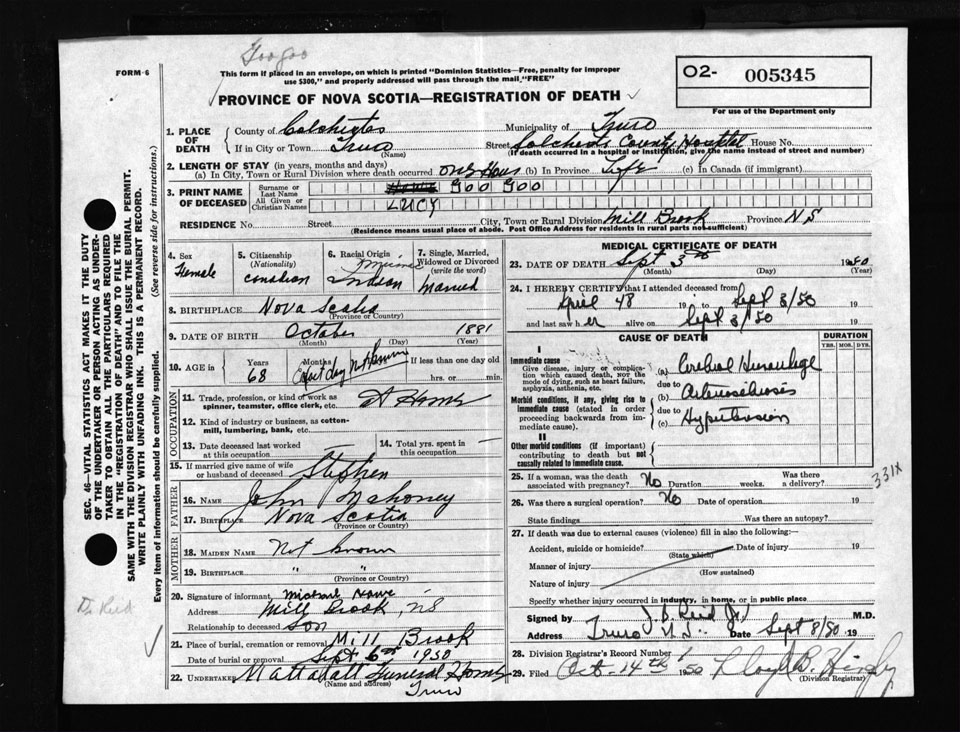 Googoo
FORM 6
This form if placed in an envelope, on which is printed "Dominion Statistics—Free, penalty for improper
use $300," and properly addressed will pass through the mail "FREE"
O2- 005345
PROVINCE OF NOVA SCOTIA—REGISTRATION OF DEATH
For use of the Department only
1. PLACE OF DEATH
County of Colchester
Municipality of Truro
If in City or Town Truro (Name)
Street Colchester County Hospital House No.
(If death occurred in a hospital or institution, give the name instead of street and number)
2. LENGTH OF STAY (in years, months and days)
(a) In City, Town or Rural Division where death occurred one Hour (b) In Province Life (c) In Canada (if immigrant)
3. PRINT NAME OF DECEASED
Surname or Last Name GOO GOO
All Given or Christian Names LUCY
RESIDENCE No. Street City, Town or Rural Division Mill Brook Province N S
(Residence means usual place of abode. Post Office Address for residents in rural parts not sufficient)
4. Sex
Female
5. Citizenship
(Nationality)
Canadian
6. Racial Origin
Indian
7. Single, Married,
Widowed or Divorced
(write the word)
Married
8. BIRTHPLACE Nova Scotia
(Province or Country)
9. DATE OF BIRTH October 1881
(Month) (Day) (Year)
10. AGE in
Years
68
Months
Exact day not known
If less than one day old
hrs. or min.
OCCUPATION
11. Trade, profession, or kind of work as
spinner, teamster, office clerk, etc. At Home
12. Kind of industry or business, as cotton-
mill, lumbering, bank, etc.
13. Date deceased last worked
at this occupation
14. Total yrs. spent in
this occupation
15. If married give name of wife
or husband of deceased Stephen
FATHER
16. NAME John Mahoney
17. BIRTHPLACE Nova Scotia
(Province or Country)
MOTHER
18. MAIDEN NAME Not known
19. BIRTHPLACE " "
(Province or Country)
20. Signature of informant, Michael
Address Mill Brook, NS
Relationship to deceased Son
21. Place of burial, cremation or removal Mill Brook
Date of burial or removal Sept 6th 1950
22. UNDERTAKER Mattatall Funeral Home
(Name and address)
Truro
MEDICAL CERTIFICATE OF DEATH
23. DATE OF DEATH Sept 3rd 1950
(Month) (Day) (Year)
24. I HEREBY CERTIFY that I attended deceased from
April 48 19 to Sept 3/50 19
and last saw her alive on Sept 3/50 19
CAUSE OF DEATH
DURATION
YRS. MOS. DYS.
I
Immediate cause
Give disease, injury or complica-
tion which caused death, not the
mode of dying, such as heart failure,
asphyxia, asthenia, etc.
(a) Cerebral Hemorrhage
due to
Morbid conditions, if any, giving rise to
immediate cause (stated in order
proceeding backwards from im-
mediate cause).
(b) Arteriosclerosis
due to
(c) Hypertension
II
Other morbid conditions (if important)
contributing to death but not
causally related to immediate cause.
25. If a woman, was the death
associated with pregnancy? No Duration weeks. Was there
a delivery?
331X
26. Was there a surgical operation? No Date of operation 19
State findings Was there an autopsy?
27. If death was due to external causes (violence) fill in also the following:—
Accident, suicide or homicide? Date of injury 19
(State which)
Manner of injury
(How sustained)
Nature of injury
Specify whether injury occurred in industry, in home, or in public place
Signed by J. B. Reid Jr M.D.
Address Truro N.S. Date Sept 8/50 19
28. Division Registrar's Record Number
29. Filed Oct. 14th 1950 Lloyd B.
(Division Registrar)
SEC. 46—VITAL STATISTICS ACT MAKES IT THE DUTY
OF THE UNDERTAKER OR PERSON ACTING AS UNDER-
TAKER TO OBTAIN ALL THE PARTICULARS REQUIRED
IN THE "REGISTRATION OF DEATH" AND TO FILE THE
SAME WITH THE DIVISION REGISTRAR WHO SHALL ISSUE THE BURIAL PERMIT.
WRITE PLAINLY WITH UNFADING INK. THIS IS A PERMANENT RECORD.
Every item of information should be carefully supplied. (See reverse side for instructions.)
Dr Reid